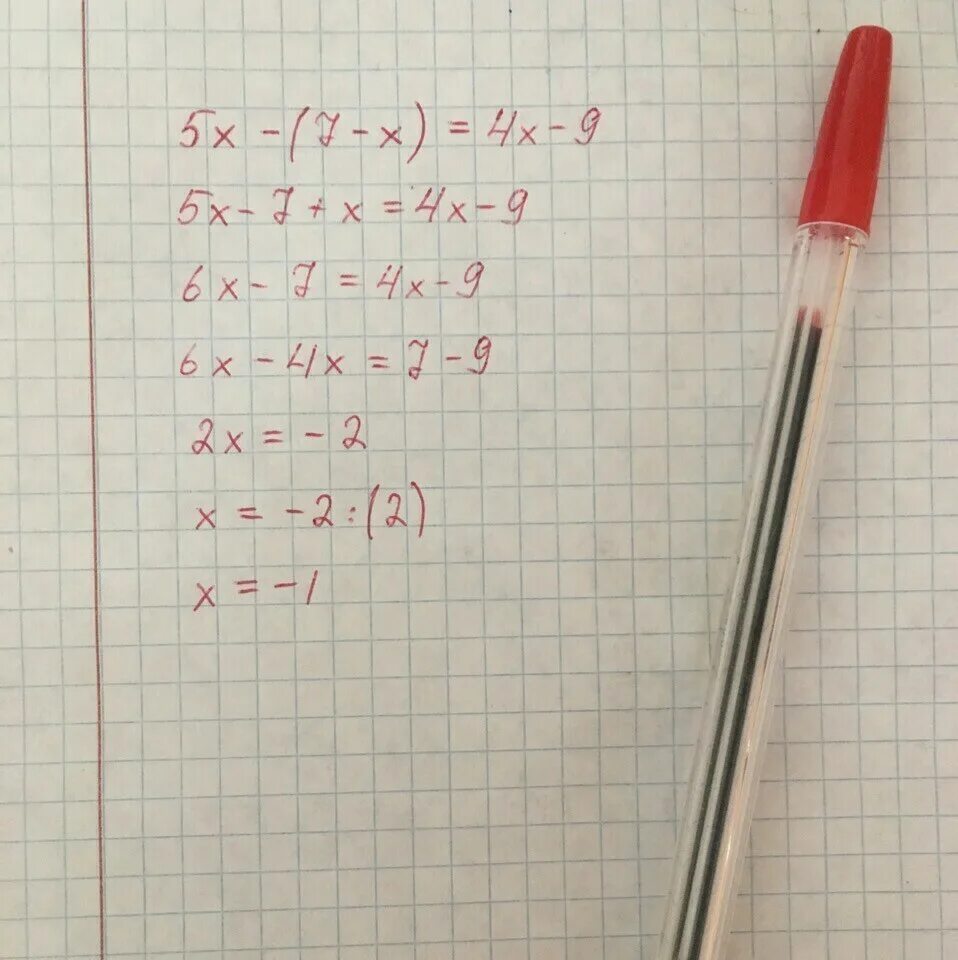 5x - (7 - x) = 4x - 9
5x - 7 + x = 4x - 9
6x - 7 = 4x - 9
6x - 4x = 7 - 9
2x = - 2
x = -2 : (2)
x = -1